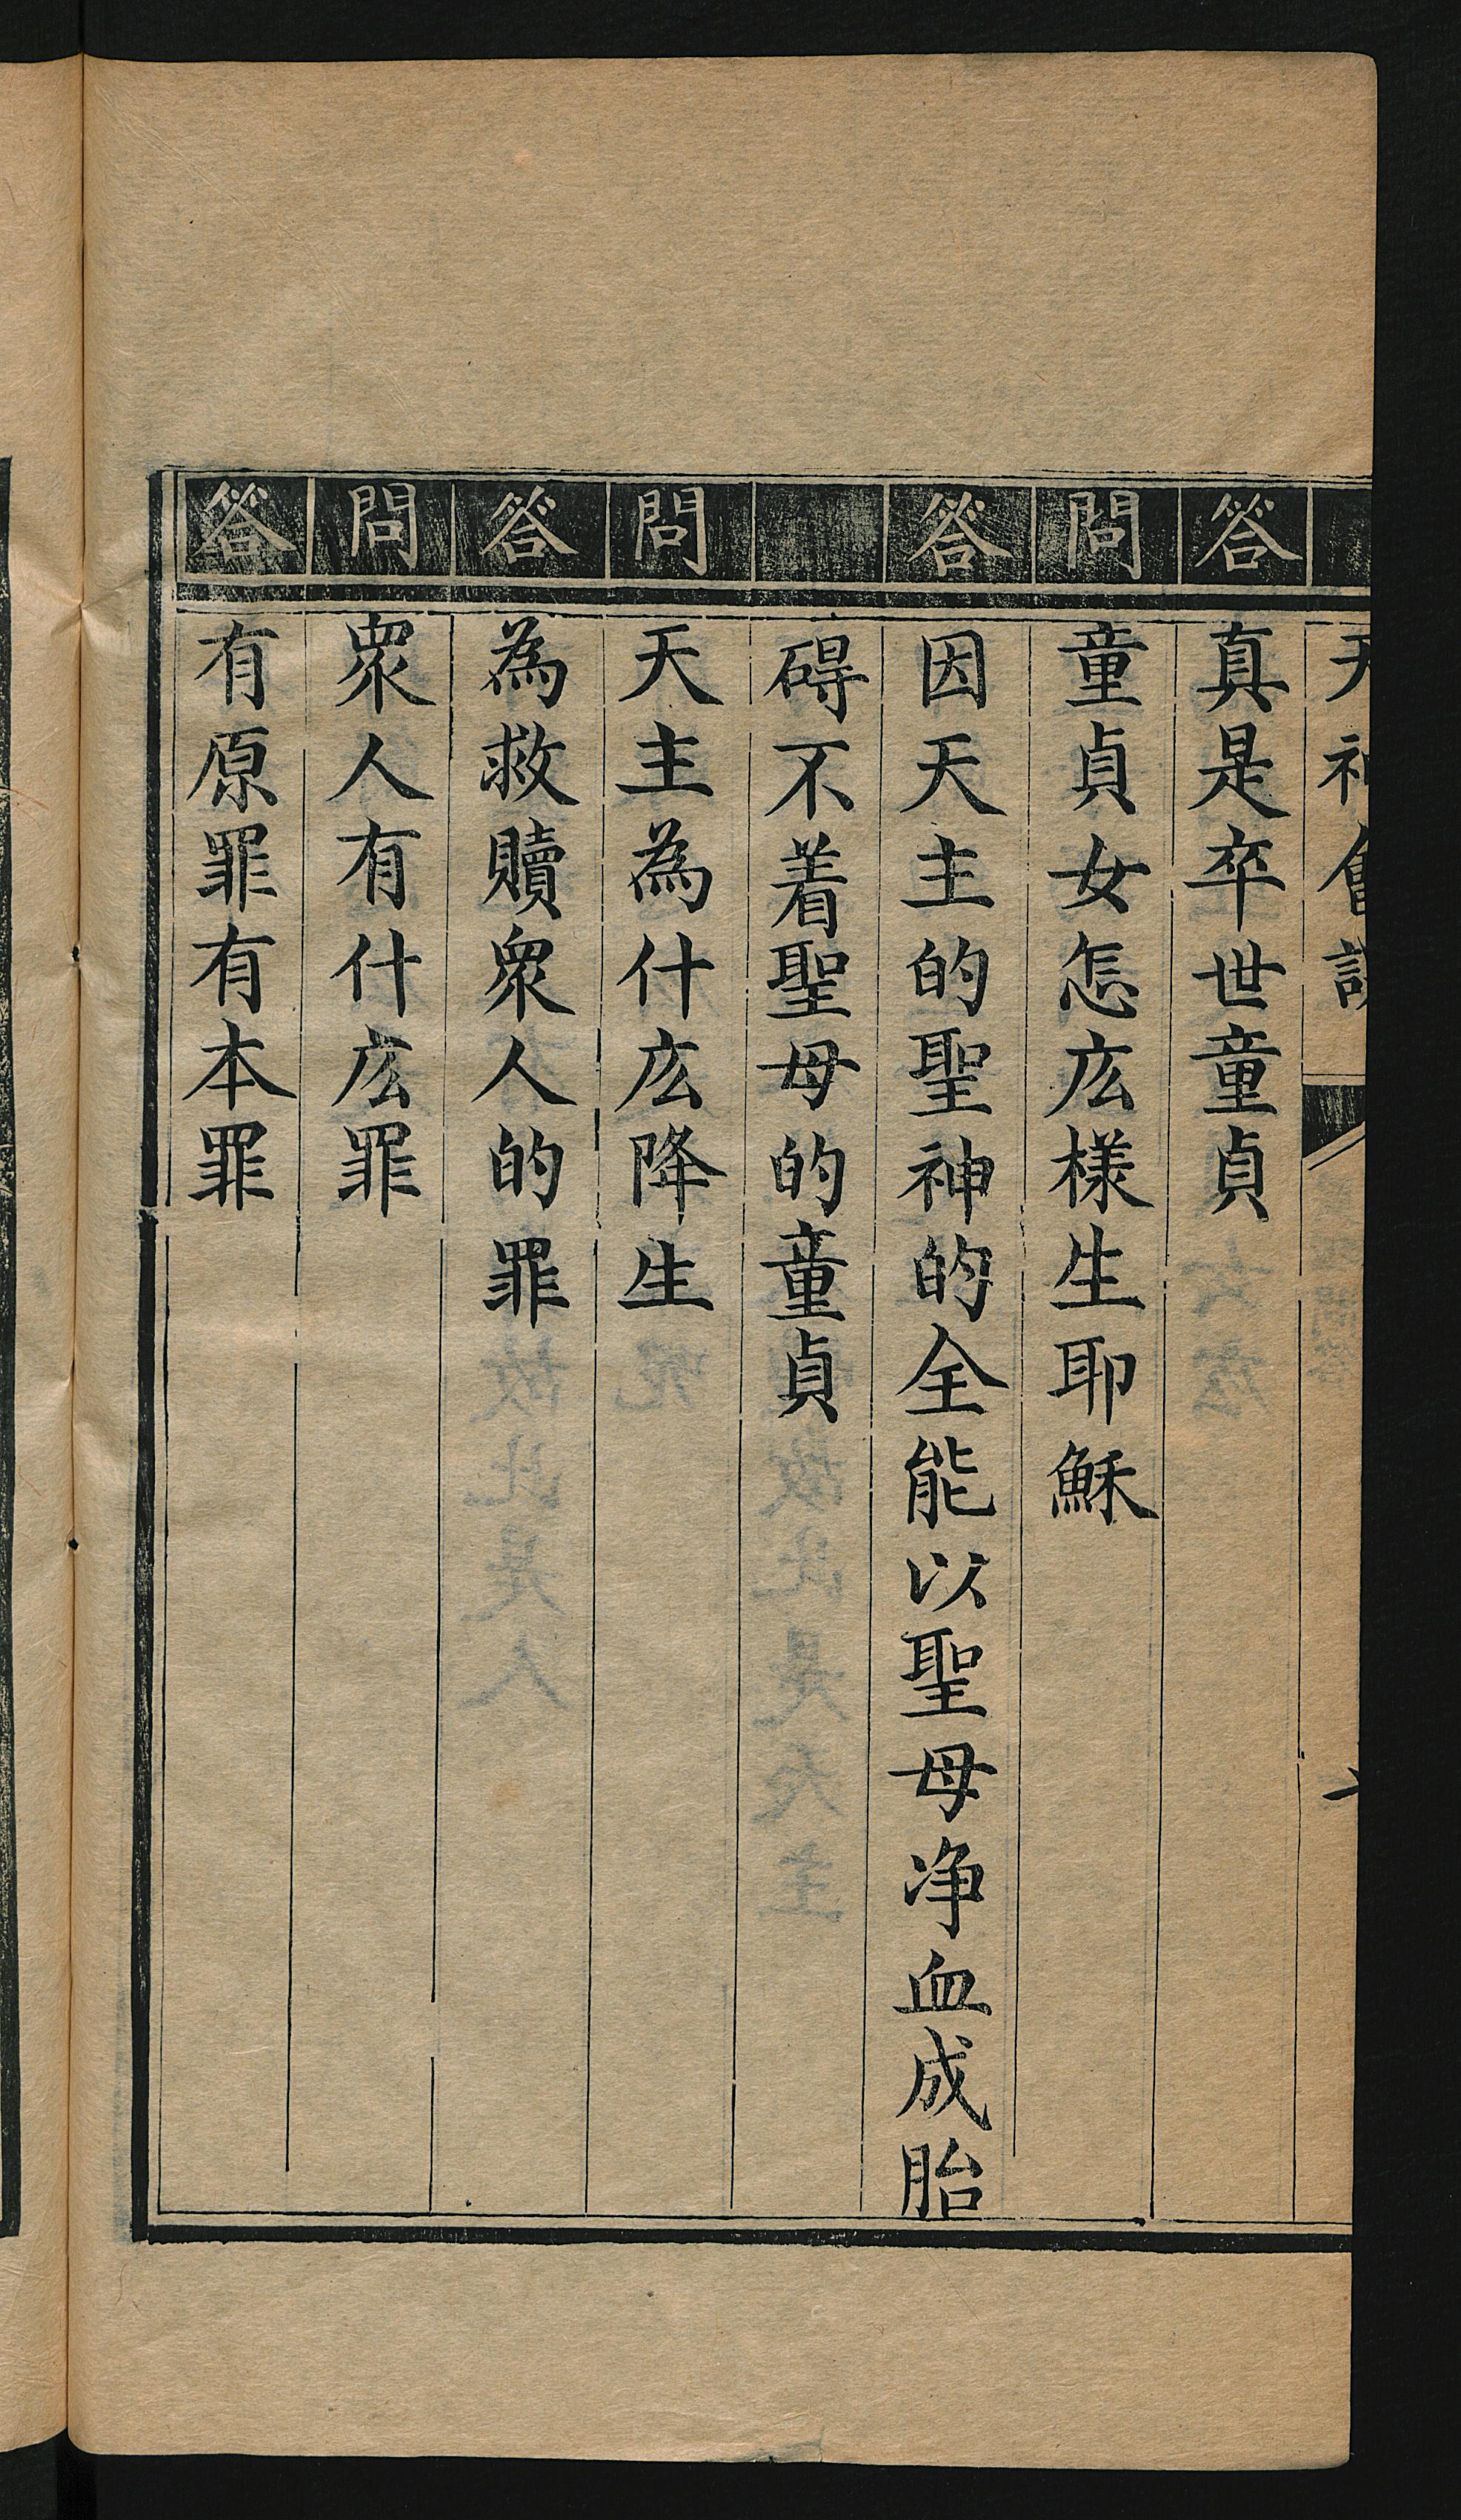 天神會課
答 真是卒世童貞
問 童貞女怎庅樣生耶穌
答 因天主的聖神的全能以聖母净血成胎
碍不着聖母的童貞
問 天主為什庅降生
答 為救贖衆人的罪
問 衆人有什庅罪
答 有原罪有本罪